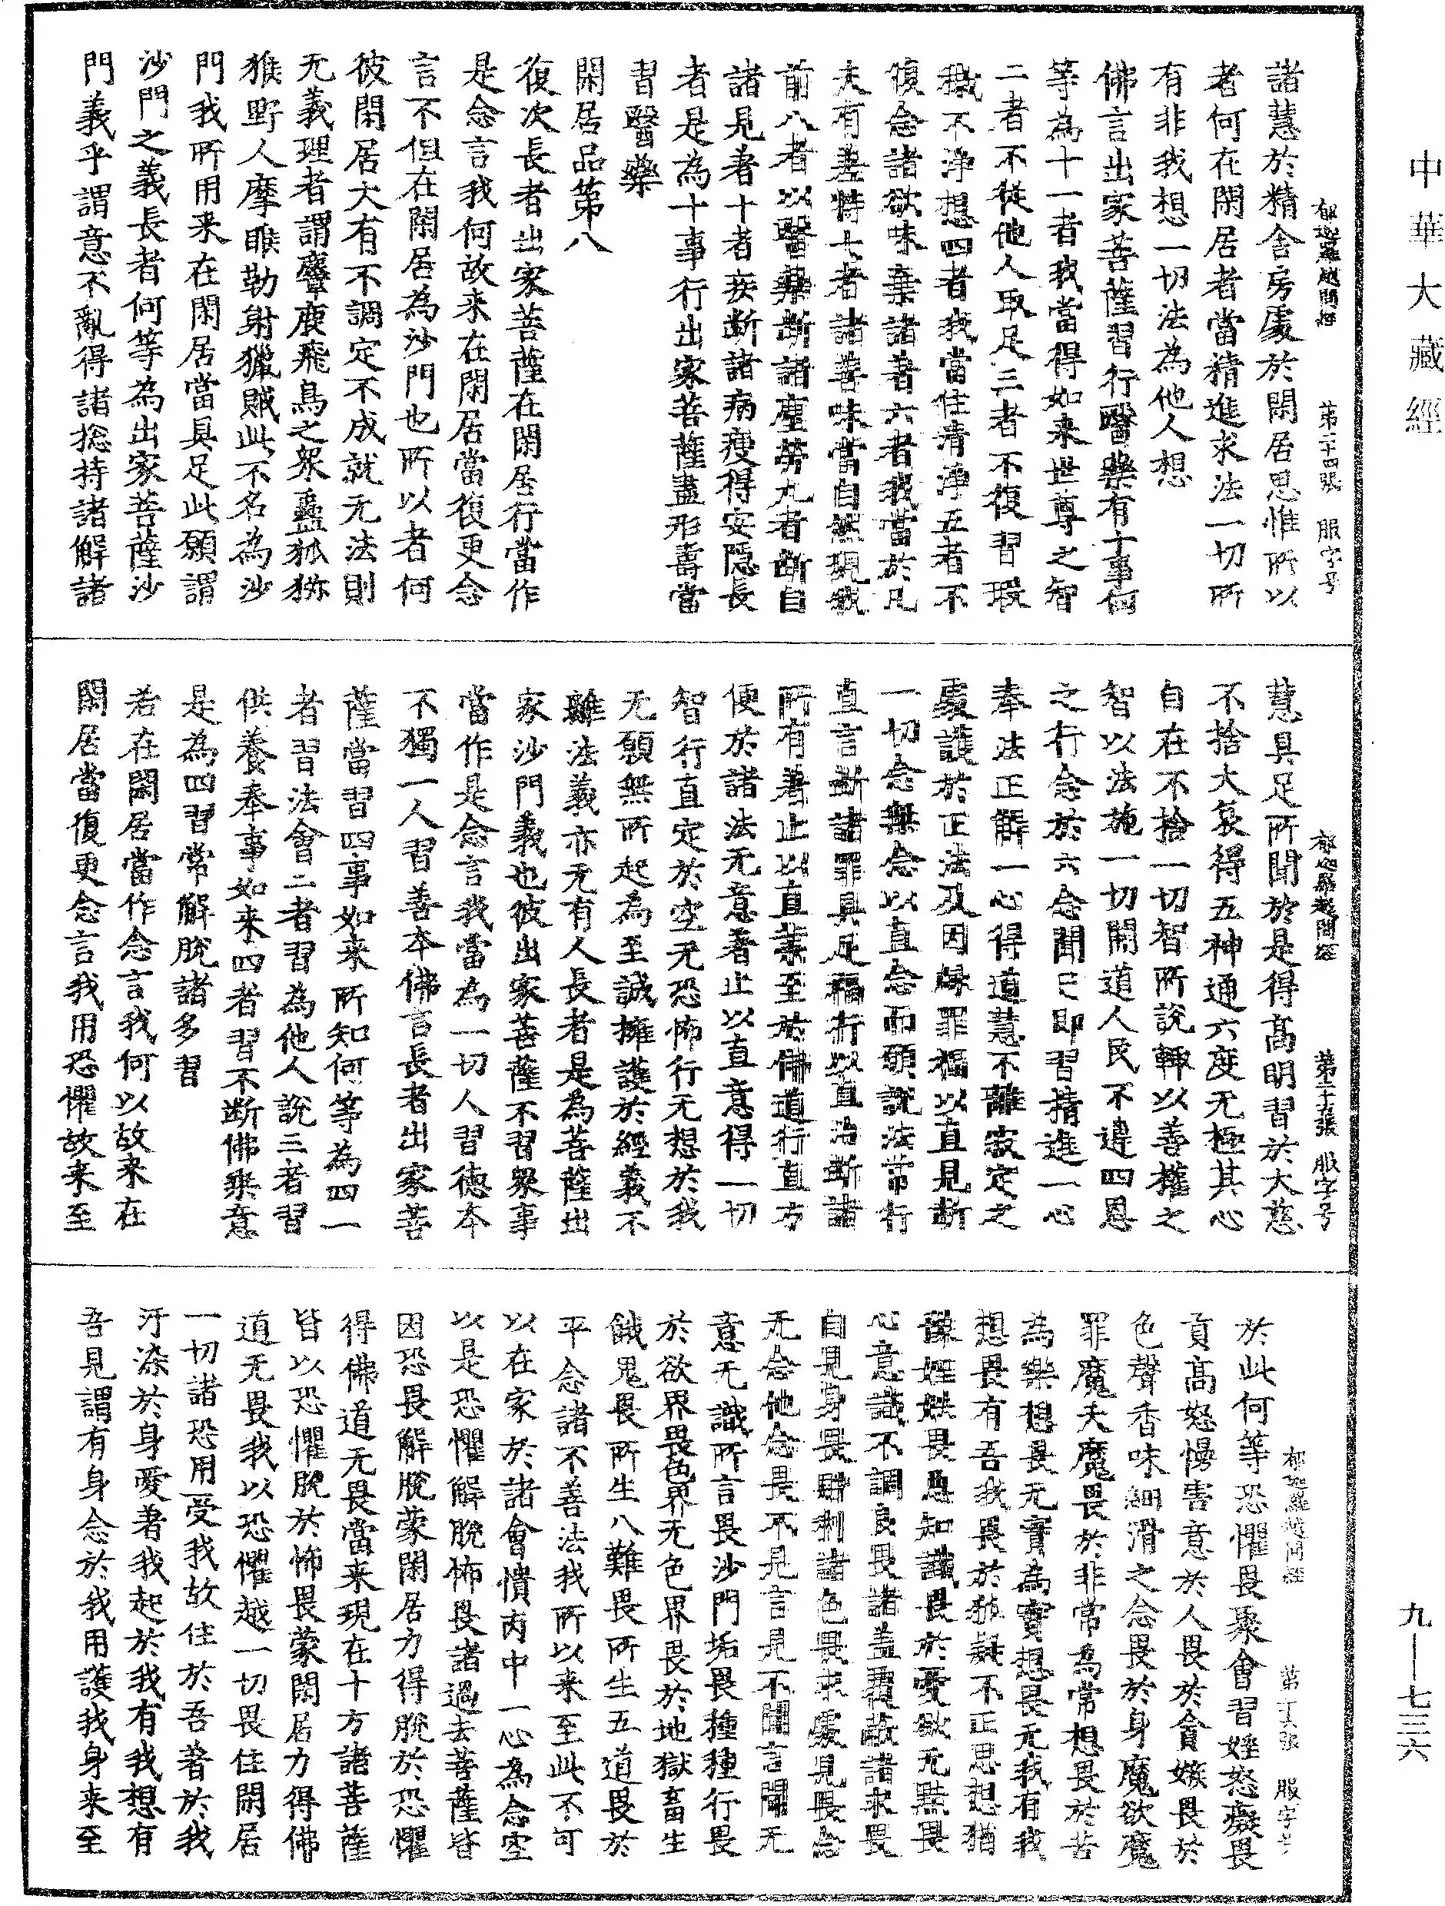 中華大藏經
郁迦羅越問經 第二十四張 服字号
諸慧於精舍房處於閑居思惟所以
者何在閑居者當精進求法一切所
有非我想一切法為他人想
佛言出家菩薩習行醫藥有十事何
等為十一者我當得如来世尊之智
二者不從他人取足三者不復習瑕
穢不淨想四者我當住清淨五者不
復念諸欲味棄諸著六者我當於凡
夫有差特七者諸善味當自然現我
前八者以醫藥斷諸塵勞九者斷自
諸見著十者疾斷諸病瘦得安隱長
者是為十事行出家菩薩盡形壽當
習醫藥
閑居品第八
復次長者出家菩薩在閑居行當作
是念言我何故来在閑居當復更念
言不但在閑居為沙門也所以者何
彼閑居大有不調定不成就无法則
无義理者謂麞鹿飛鳥之衆蠱狐狝
猴野人摩睺勒射獵賊此不名為沙
門我所用来在閑居當具足此願謂
沙門之義長者何等為出家菩薩沙
門義乎謂意不亂得諸捴持諸解諸
郁迦羅越問經 第二十五張 服字号
慧具足所聞於是得高明習於大慈
不捨大哀得五神通六度无極其心
自在不捨一切智所說輙以善權之
智以法施一切閑道人民不違四恩
之行念於六念聞已即習精進一心
奉法正解一心得道慧不離寂定之
處護於正法及因緣罪福以直見斷
一切念無念以直念而頒說法常行
直言斷諸罪具足福行以直治斷諸
所有著止以直業至於佛道行直方
便於諸法无意著止以直意得一切
智行直定於空无恐怖行无想於我
无願無所起為至誠擁護於經義不
離法義亦无有人長者是為菩薩出
家沙門義也彼出家菩薩不習衆事
當作是念言我當為一切人習德本
不獨一人習善本佛言長者出家菩
薩當習四事如来所知何等為四一
者習法會二者習為他人說三者習
供養奉事如来四者習不斷佛乘意
是為四習常解脫諸多習
若在閑居當作念言我何以故来在
閑居當復更念言我用恐懼故来至
郁迦羅越問經 張 服字号
於此何等恐懼畏聚會習婬怒癡畏
貢高怒慢害意於人畏於貪嫉畏於
色聲香味細滑之念畏於身魔欲魔
罪魔天魔畏於非常為常想畏於苦
為樂想畏无實為實想畏无我有我
想畏有吾我畏於狐疑不正思想猶
豫婬妷畏惡知識畏於愛欲无點畏
心意識不調良畏諸盖覆蔽諸求畏
自見身畏財利諸色畏求處見畏念
无念他念畏不見言見不聞言聞无
意无識所言畏沙門垢畏種種行畏
於欲界畏色界无色界畏於地獄畜生
餓鬼畏所生八難畏所生五道畏於
平念諸不善法我所以来至此不可
以在家於諸會憒丙中一心為念空
以是恐懼解脫怖畏諸過去菩薩皆
因恐畏解脫蒙閑居力得脫於恐懼
得佛道无畏當来現在十方諸菩薩
皆以恐懼脫於怖畏蒙閑居力得佛
道无畏我以恐懼越一切畏住閑居
一切諸恐用受我故住於吾著於我
汙染於身愛著我起於我有我想有
吾見謂有身念於我用護我身来至
九—七三六